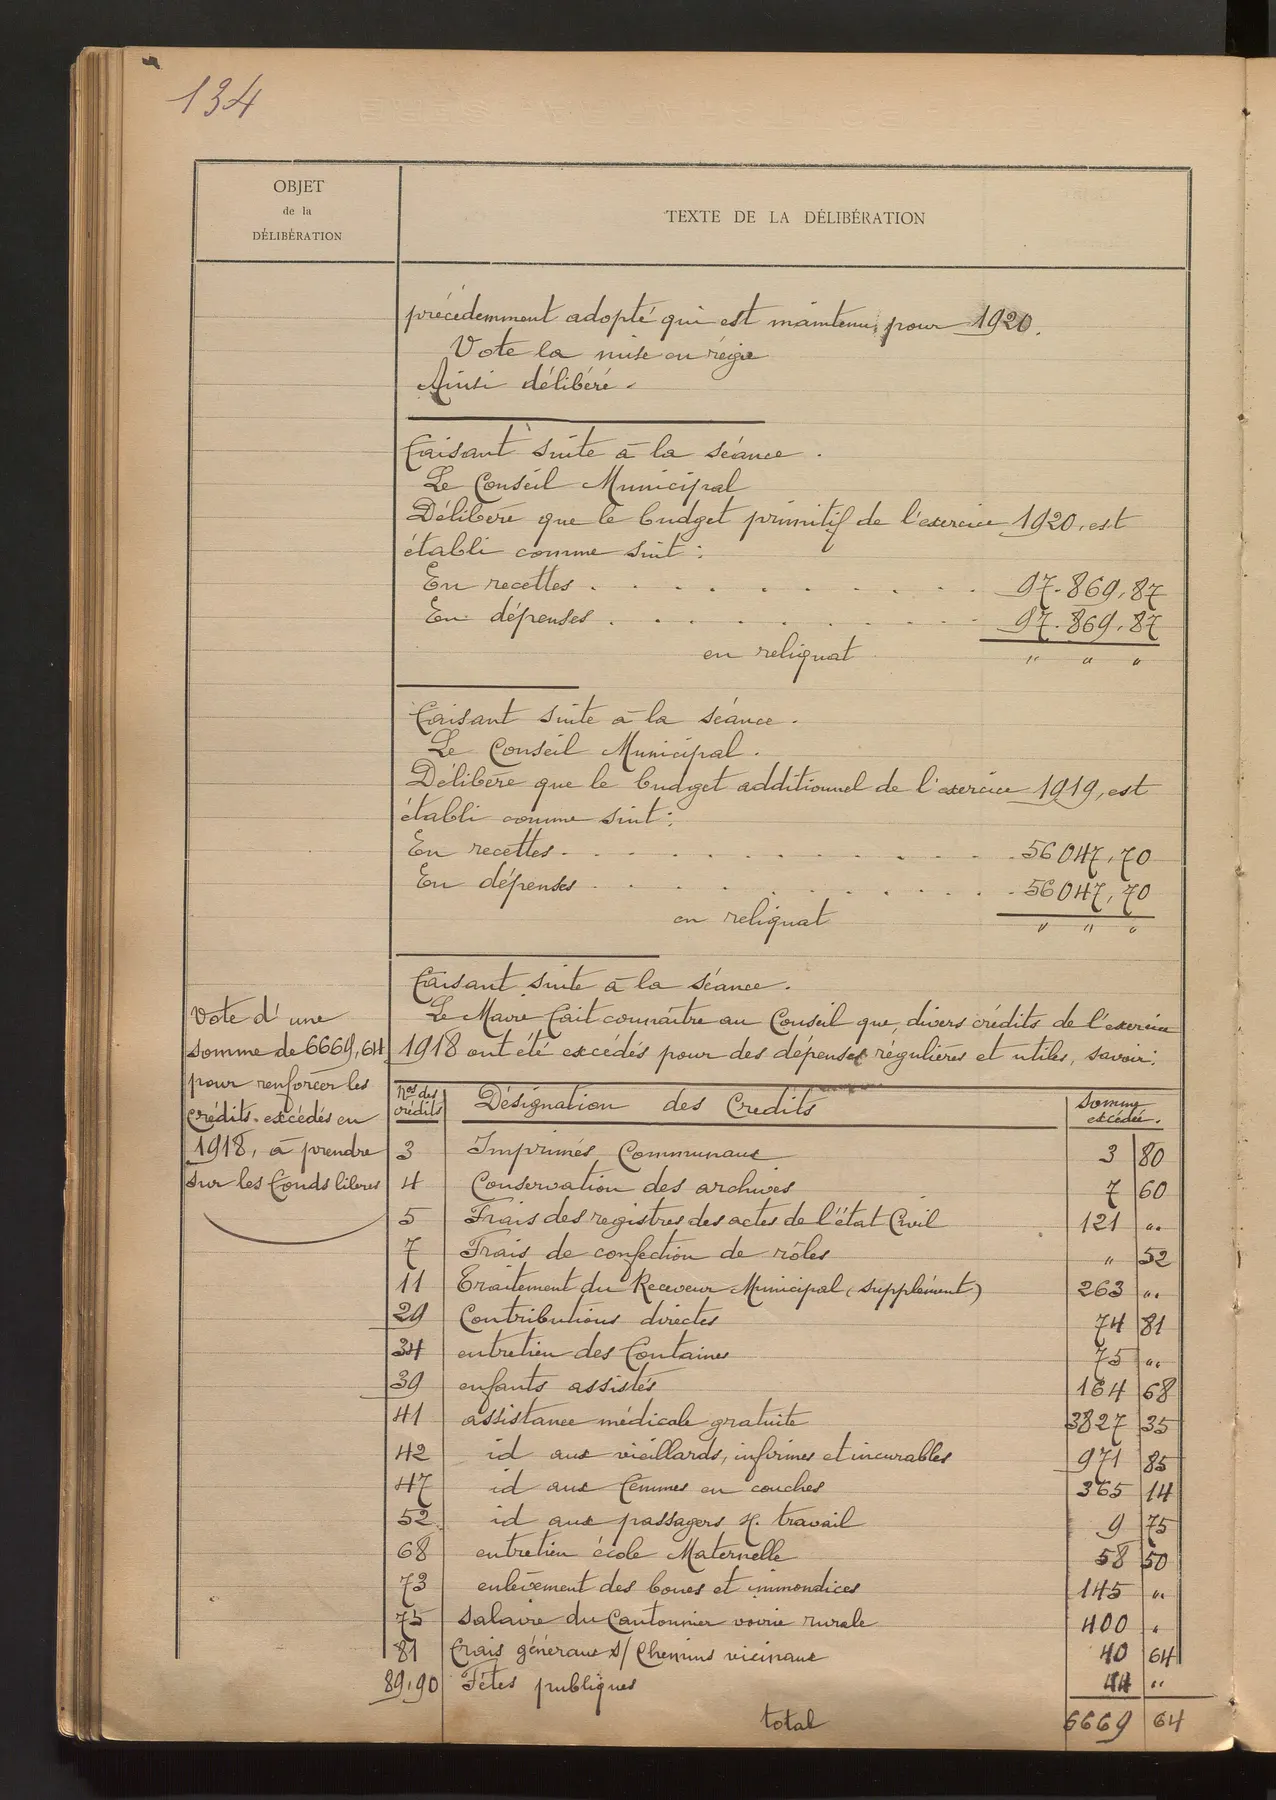 134
OBJET
de la
DÉLIBÉRATION
TEXTE DE LA DÉLIBÉRATION
précédemment adopté qui est maintenu, pour 1920.
Vote la mise en régie
Ainsi délibéré.
Faisant suite à la séance.
Le Conseil Municipal
Délibère que le budget primitif de l'exercice 1920, est
établi comme suit :
En recettes . . . . . . . . . . . 97.869,87
En dépenses . . . . . . . . . . . 97.869,87
en reliquat " " "
Faisant suite à la séance.
Le Conseil Municipal.
Délibère que le budget additionnel de l'exercice 1919, est
établi comme suit :
En recettes . . . . . . . . . . . 56047,70
En dépenses . . . . . . . . . . . 56047,70
en reliquat " " "
Faisant suite à la séance.
Le Maire fait connaître au Conseil que, divers crédits de l'exercice
1918 ont été excédés pour des dépenses régulières et utiles, savoir :
Vote d'une
somme de 6669,64
pour renforcer les
crédits excédés en
1918, à prendre
sur les fonds libres
Nos des crédits Désignation des Crédits Somme excédée.
3 Imprimés Communaux 3 80
4 Conservation des archives 7 60
5 Frais des registres des actes de l'état Civil 121 "
7 Frais de confection de rôles " 52
11 Traitement du Receveur Municipal (supplément) 263 "
29 Contributions directes 74 81
34 entretien des Fontaines 75 "
39 enfants assistés 164 68
41 assistance médicale gratuite 3827 35
42 id aux vieillards, infirmes et incurables 971 85
47 id aux femmes en couches 365 14
52 id aux passagers st. travail 9 75
68 entretien école Maternelle 58 50
73 enlèvement des boues et immondices 145 "
75 salaire du Cantonnier voirie rurale 400 "
81 Frais généraux s/ Chemins vicinaux 40 64
89,90 Fêtes publiques 44 "
total 6669 64